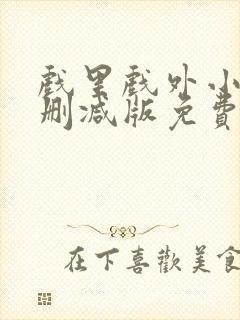 戲里戲外小
刪减版免費
在下喜歡美食